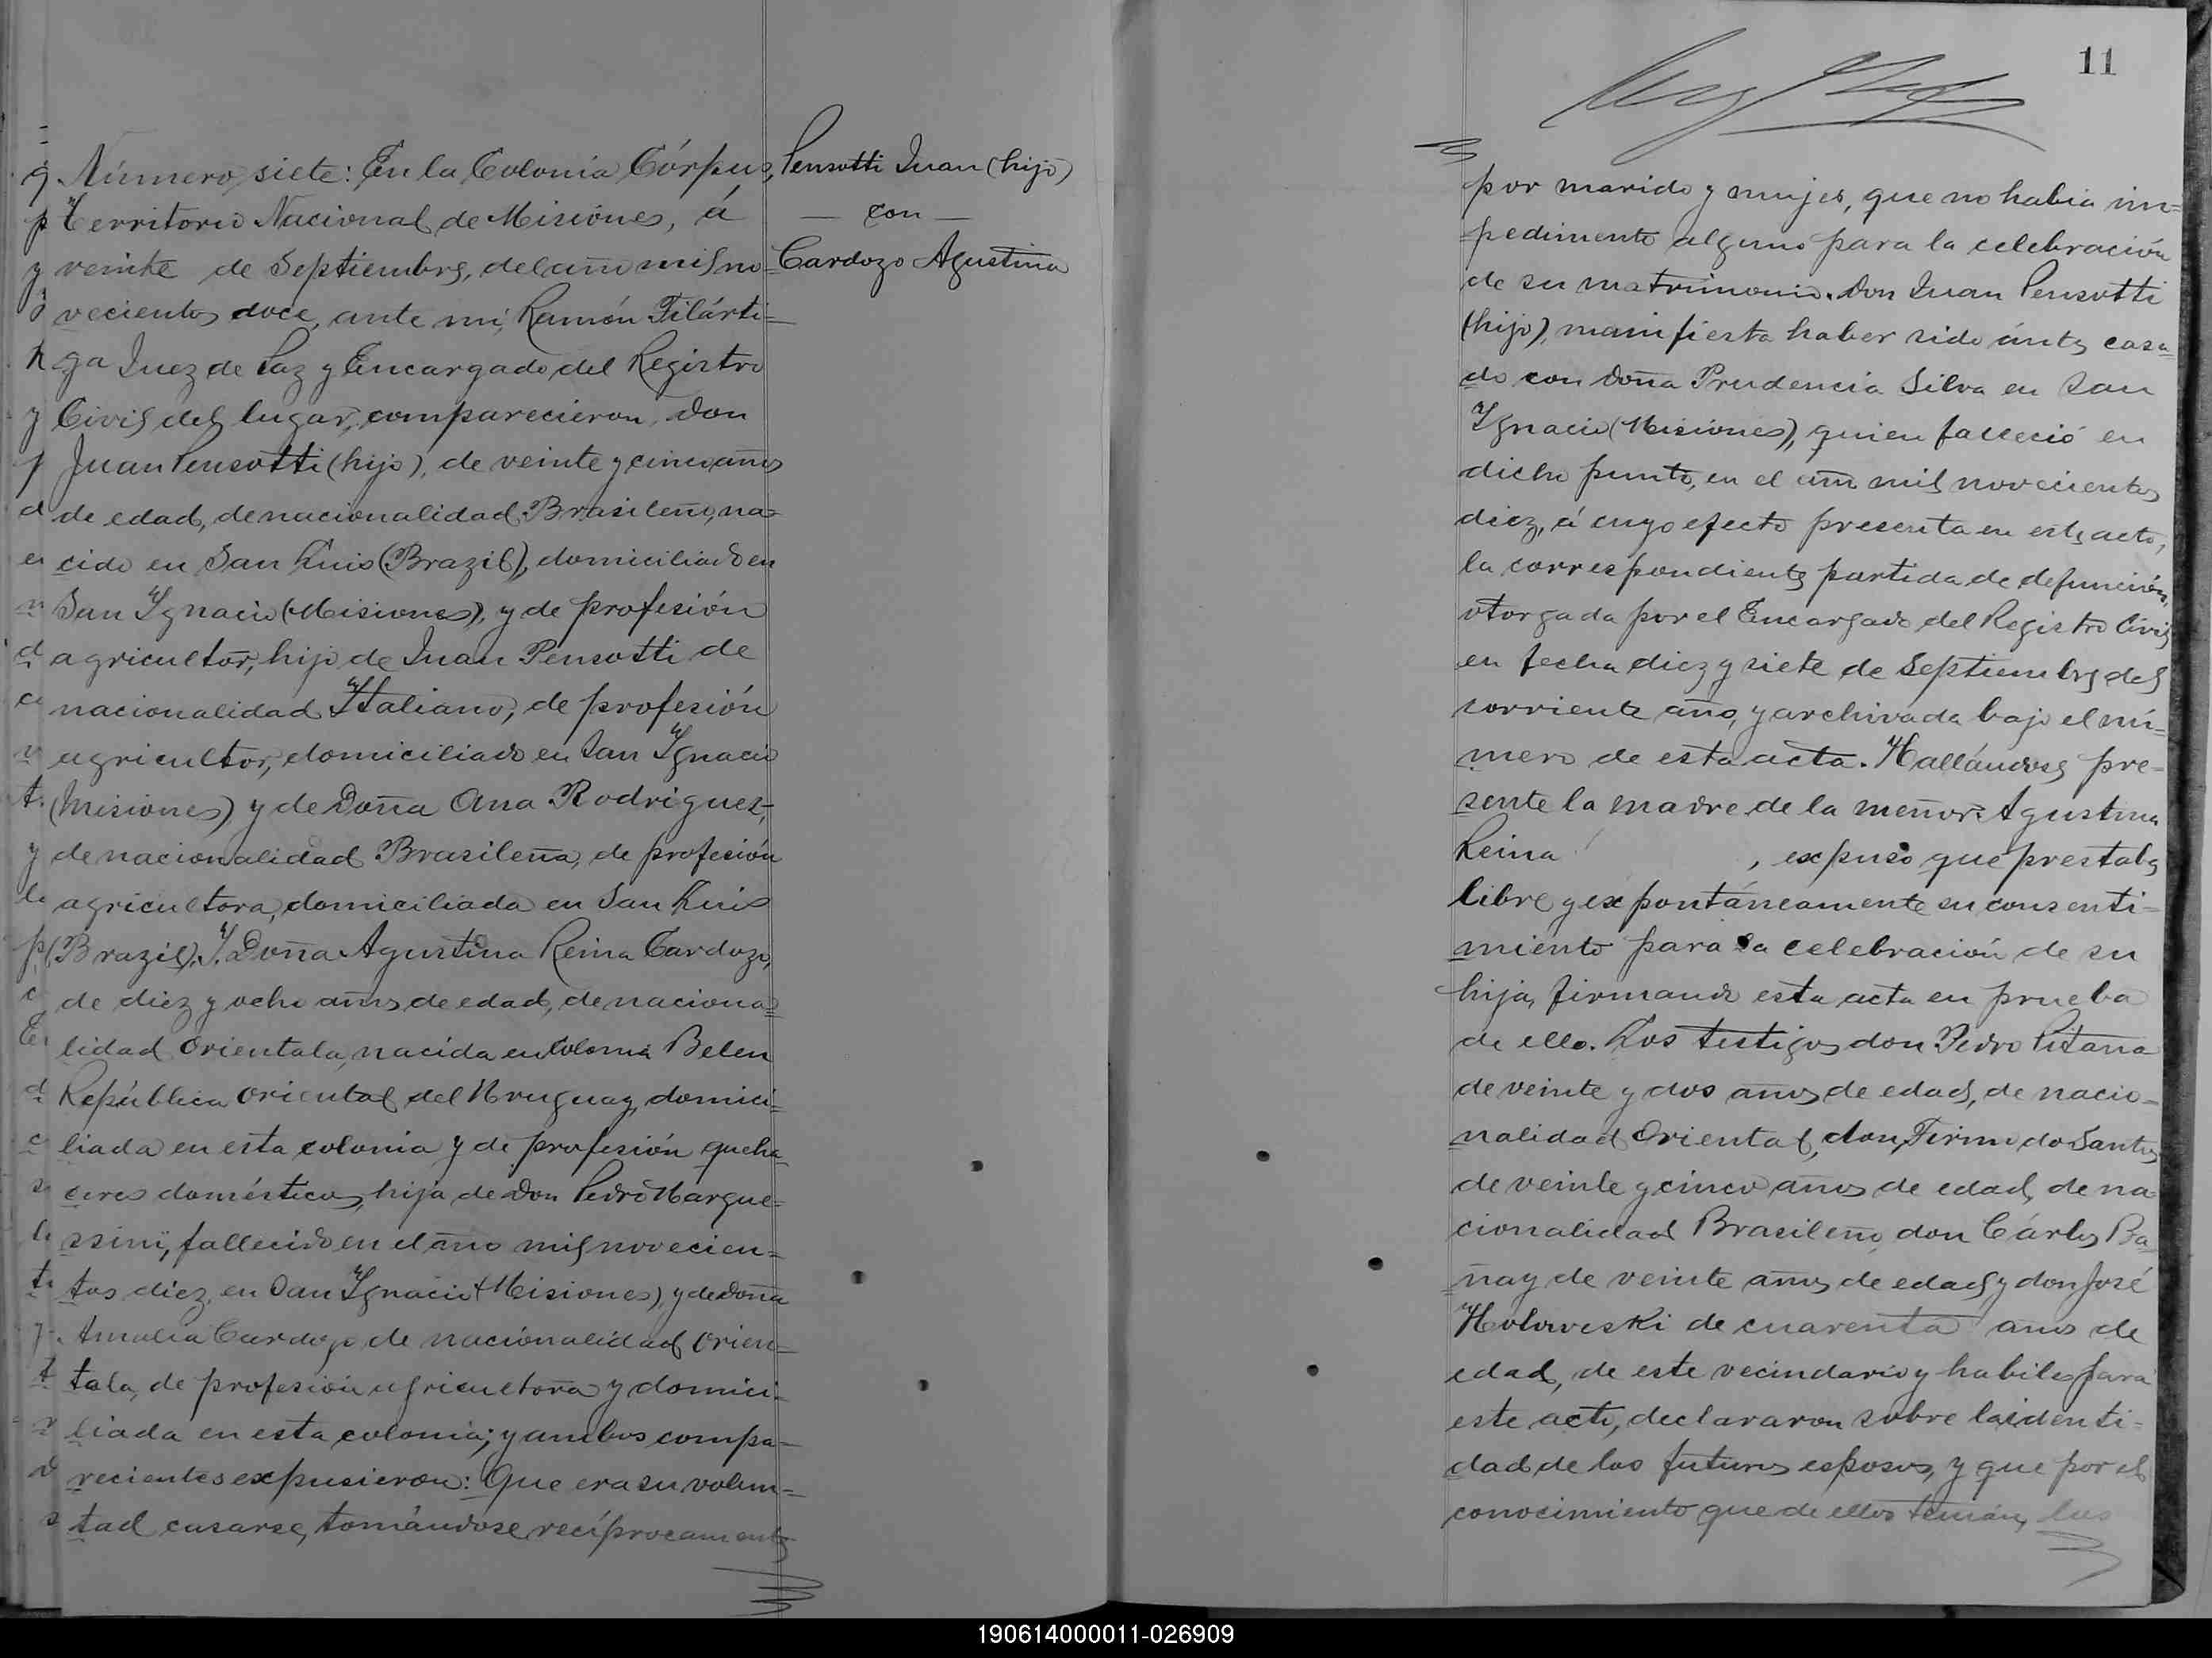 Número siete: En la Colonia Córpus,
Territorio Nacional de Misiones, á
veinte de Septiembre, del año mil no=
vecientos doce, ante mi, Ramón Filárti=
ga Juez de Paz y Encargado del Registro
Civil del lugar, comparecieron, Don
Juan Pensotti (hijo), de veinte y cinco años
de edad, de nacionalidad Brasileño, na=
cido en San Luis (Brazil), domiciliado en
San Ignacio (Misiones), y de profesión
agricultor, hijo de Juan Pensotti de
nacionalidad Italiano, de profesión
agricultor, domiciliado en San Ignacio
(Misiones) y de Doña Ana Rodriguez,
de nacionalidad Brasileña, de profesión
agricultora, domiciliada en San Luis
(Brazil). Y Doña Agustina Reina Cardozo,
de diez y ocho años de edad, de naciona=
lidad orientala, nacida en Colonia Belen
República oriental del Uruguay, domici=
liada en esta colonia y de profesión queha=
ceres domésticos, hija de Don Pedro Margue=
ssini, fallecido en el año mil novecien=
tos diez, en San Ignacio (Misiones) y de Doña
Amalia Cardozo de nacionalidad orien=
tala, de profesión agricultora y domici=
liada en esta colonia; y ambos compa=
recientes expusieron: Que era su volun=
tad casarse, tomándose recíprocamente
Pensotti Juan (hijo)
— con —
Cardozo Agustina
11
por marido y mujer, que no habia im=
pedimento alguno para la celebración
de su matrimonio. Don Juan Pensotti
(hijo), manifiesta haber sido ántes casa=
do con Doña Prudencia Silva en San
Ignacio (Misiones), quien falleció en
dicho punto, en el año mil novecientos
diez, á cuyo efecto presenta en este acto,
la correspondiente partida de defunción,
otorgada por el Encargado del Registro Civil
en fecha diez y siete de Septiembre del
corriente año, y archivada bajo el nú=
mero de esta acta. Hallándose pre=
sente la madre de la menor Agustina
Reina , expuso que prestaba
libre y expontáneamente su consenti=
miento para la celebración de su
hija, firmando esta acta en prueba
de ello. Los testigos don Pedro Pitana
de veinte y dos años de edad, de nacio=
nalidad Oriental, don Firmo do Santos
de veinte y cinco años de edad, de na=
cionalidad Brasileño, don Cárlos Ba=
ñay de veinte años de edad y don José
Holoweski de cuarenta años de
edad, de este vecindario y habiles para
este acto, declararon sobre la identi=
dad de los futuros esposos, y que por el
conocimiento que de ellos tenían, los
190614000011-026909